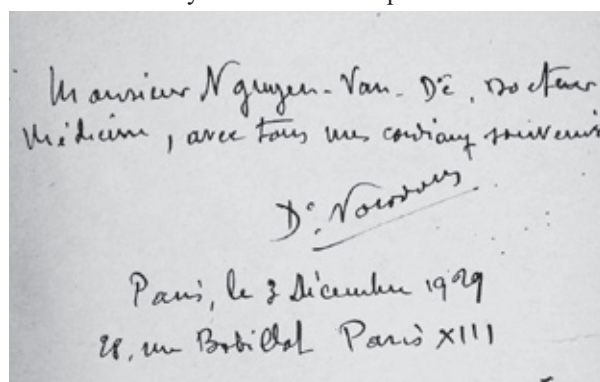 Monsieur Nguyen-Van-Dê, Docteur
Médecine, avec tous mes cordiaux souvenirs
Dr.
Paris, le 3 Décembre 1929
28, rue Bobillot Paris XIII